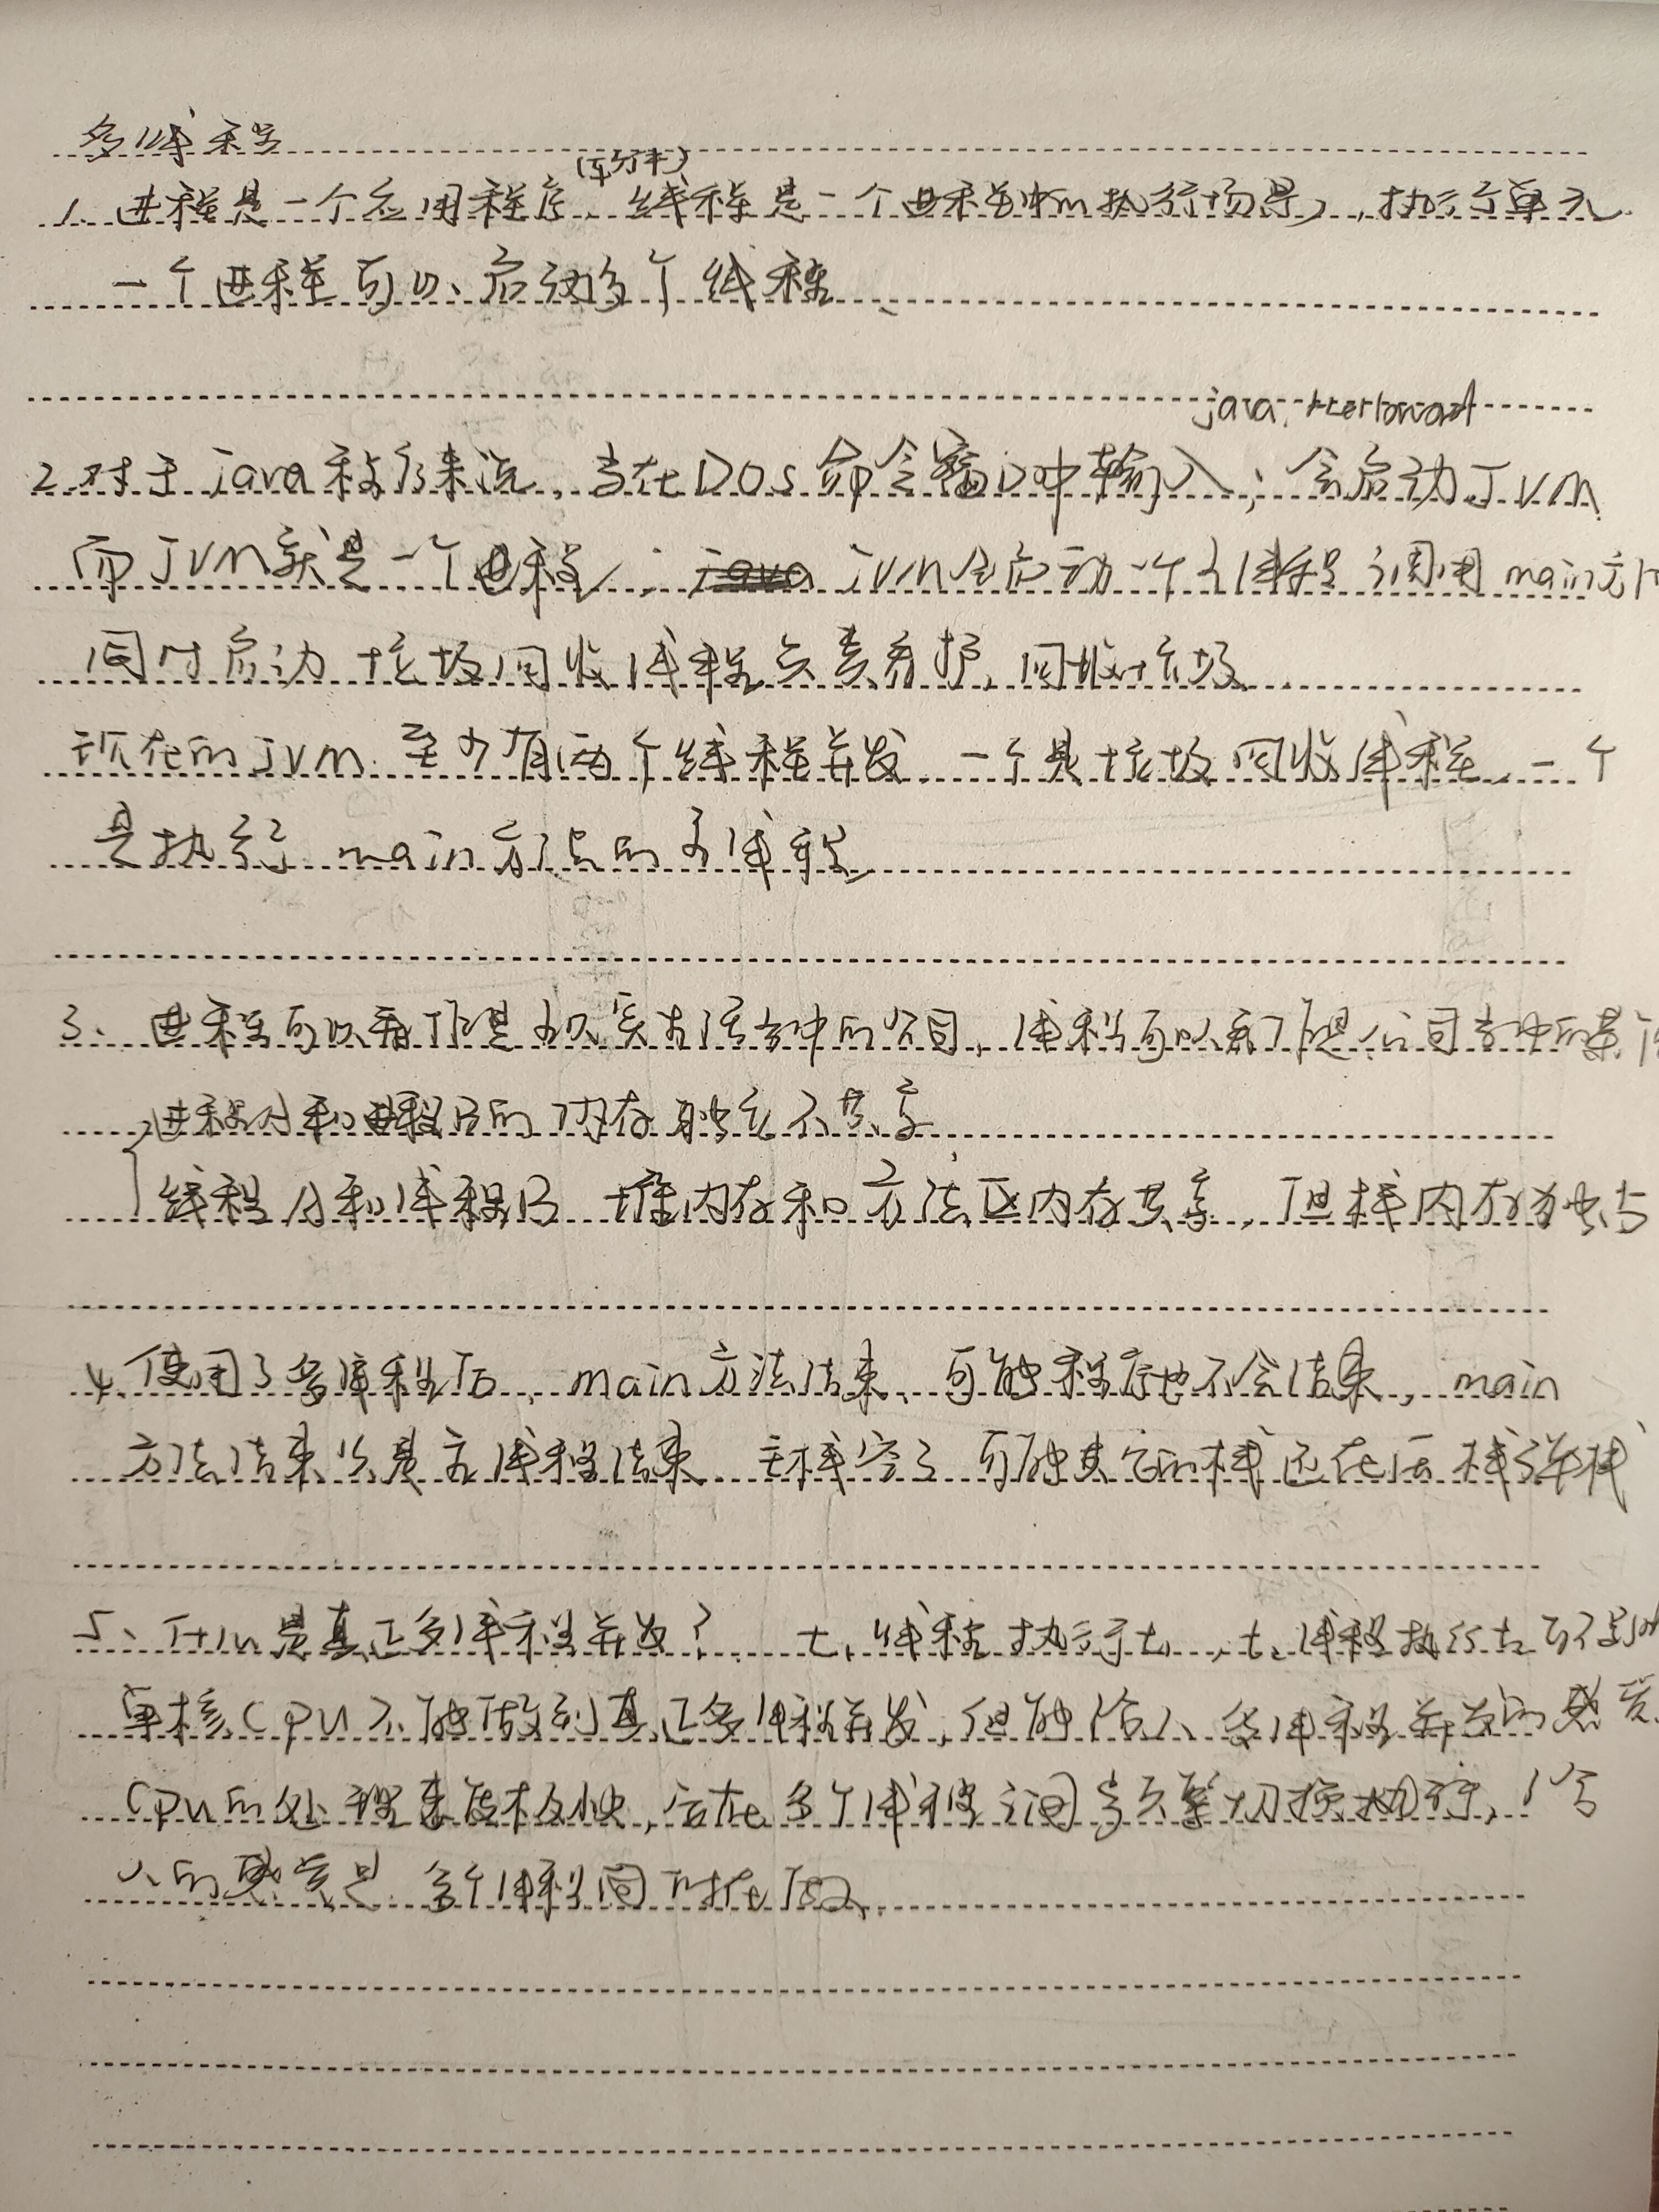 多线程
(软件)
1. 进程是一个应用程序、线程是一个进程中的执行场景, 执行单元.
一个进程可以、启动多个线程、
java HelloWorld
2. 对于java程序来说, 当在DOS命令窗口中输入; 会启动JVM
而JVM就是一个进程, JVM会启动一个主线程调用main方
同时启动垃圾回收线程负责看护, 回收垃圾
现在的JVM 至少有两个线程并发 一个是垃圾回收线程, 一个
是执行 main方法的主线程
3、进程可以看作是现实生活当中的公司, 线程可以看作是公司当中的某个
进程A和进程B的 内存独立不共享
线程A和线程B 堆内存和方法区内存共享, 但栈内存独立
4、使用了多线程后, main方法结束、可能程序也不会结束, main
方法结束只是主线程结束 主栈空了 可能其它的栈还在压栈弹栈
5、什么是真正多线程并发? t1线程执行t1, t2线程执行t2
单核CPU不能做到真正多线程并发, 但能给人多线程并发的感觉
CPU的处理速度极快, 在多个线程之间频繁切换执行, 给
人的感觉是 多个线程同时在做、